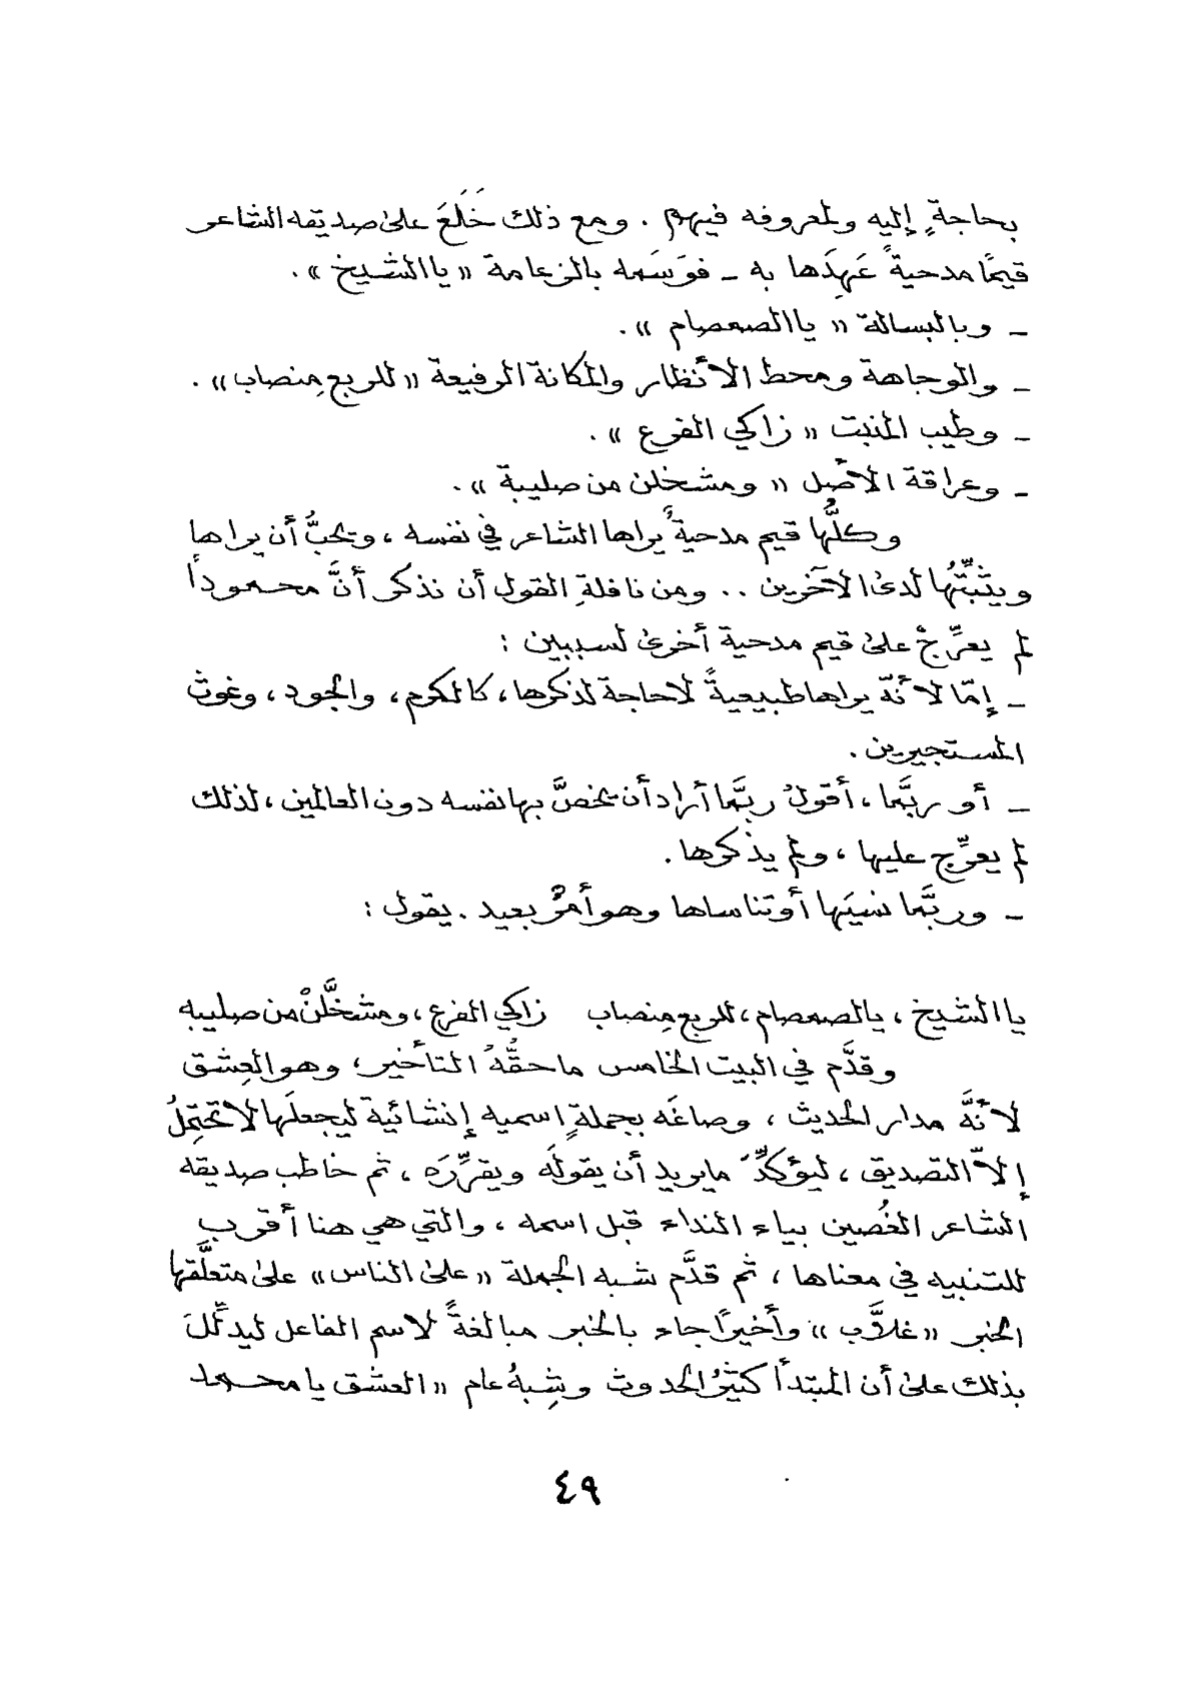 بحاجةٍ إليه ولمعروفه فيهم . ومع ذلك خَلَعَ على صديقه الشاعر
قيمًا مدحيةً عَهِدَها به – فوَسَمه بالزعامة « يا الشيخ » .
– وبالبسالة « يا الصمصام » .
– والوجاهة ومحط الأنظار والمكانة الرفيعة « للربع مِنصاب » .
– وطيب المنبت « زاكي الفرع » .
– وعراقة الأصل « ومشخلن من صليبة » .
وكلُّها قيم مدحيةٌ يراها الشاعر في نفسه ، ويحبُّ أن يراها
ويثبِّتُها لدى الآخرين .. ومن نافلةِ القول أن نذكر أنَّ محموداً
لم يعرِّجْ على قيم مدحية أخرى لسببين :
– إمّا لأنّه يراها طبيعيةً لا حاجة لذكرها ، كالكرم ، والجود ، وغوث
المستجيرين .
– أو ربَّما ، أقولُ ربَّما أراد أن يخصَّ بها نفسه دون العالمين ، لذلك
لم يعرِّج عليها ، ولم يذكرها .
– وربَّما نسيَها أو تناساها وهو أمرٌ بعيد . يقول :
يا الشيخ ، يالصمصام ، للربع مِنصاب زاكي الفرع ، ومشخَّلنْ من صليبه
وقدَّم في البيت الخامس ما حقُّهُ التأخير ، وهو العِشق
لأنَّه مدار الحديث ، وصاغَه بجملةٍ اسميه إنشائية ليجعلَها لا تحتمِلُ
إلاّ التصديق ، ليؤكدِّ ما يريد أن يقولَه ويقرِّرَه ، ثم خاطب صديقه
الشاعر الغُصين بياء النداء قبل اسمه ، والتي هي هنا أقرب
للتنبيه في معناها ، ثم قدَّم شبه الجملة « على الناس » على متعلَّقها
الخبر « غلاَّب » وأخيرًا جاء بالخبر مبالغةً لاسم الفاعل ليدلِّلَ
بذلك على أن المبتدأ كثيرُ الحدوث وشِبهُ عام « العشق يا محمد
٤٩